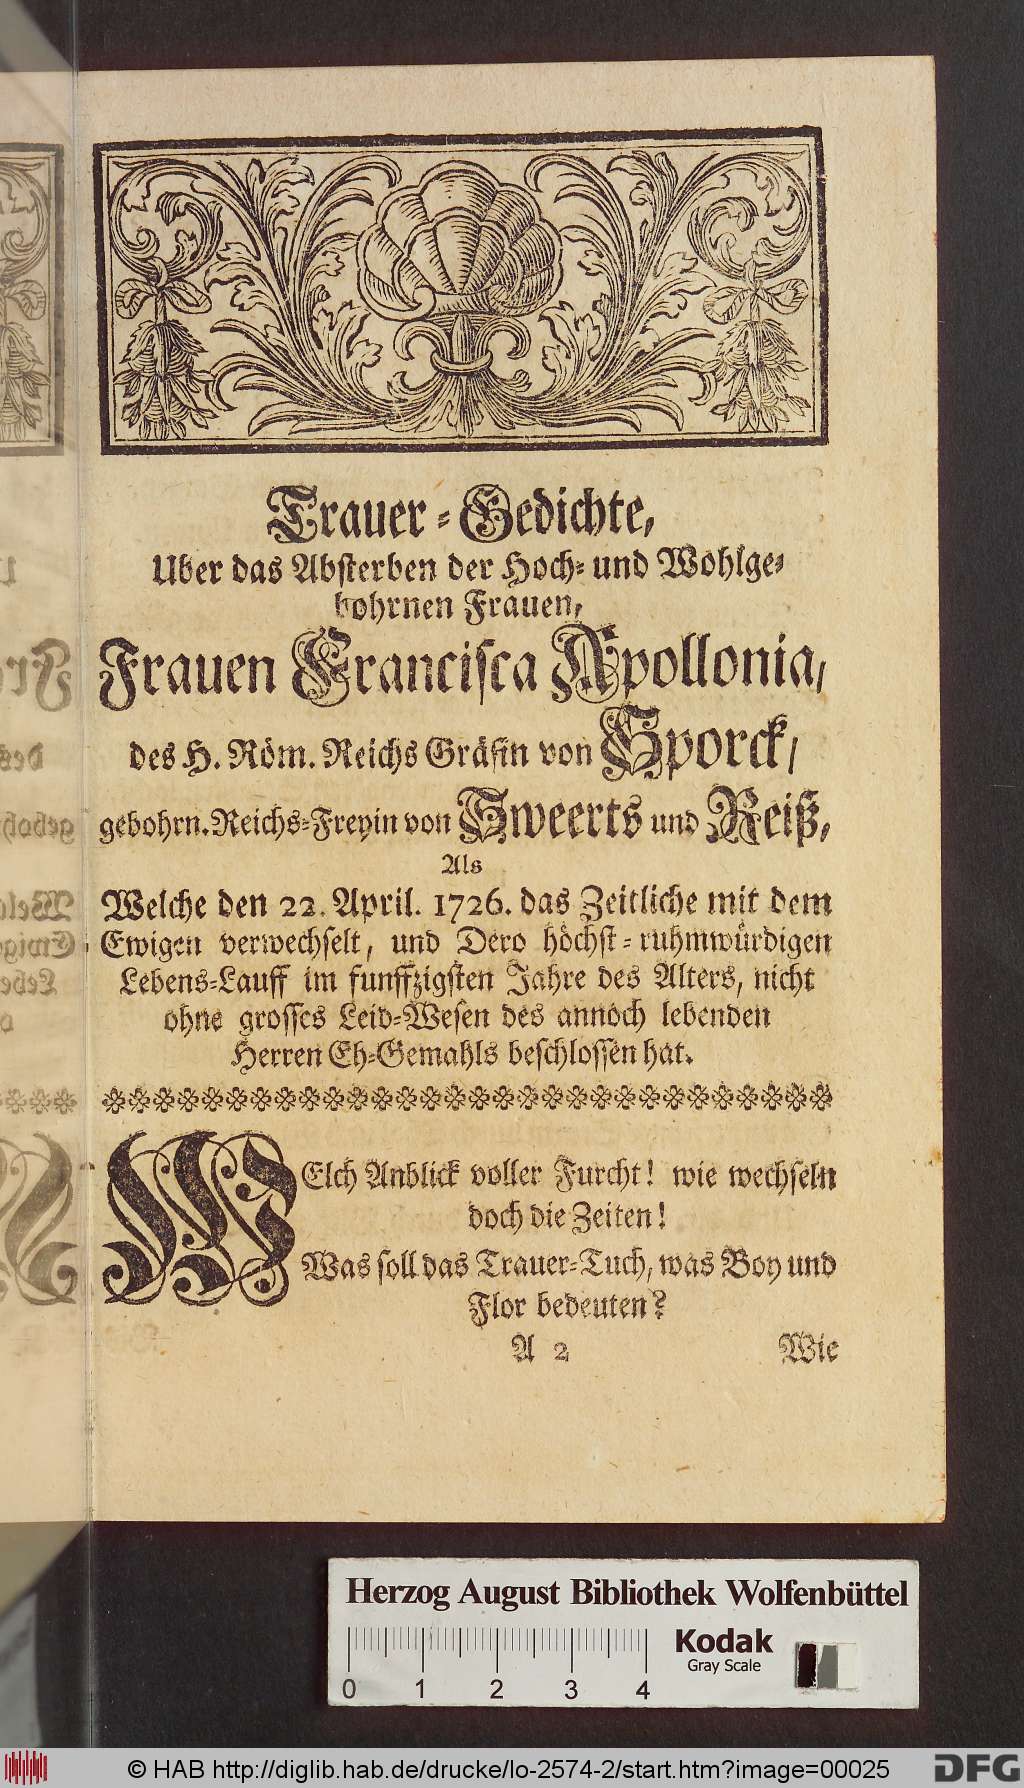 Trauer-Gedichte,
Uber das Absterben der Hoch- und Wohlge-
bohrnen Frauen,
Frauen Francisca Apollonia,
des H. Röm. Reichs Gräfin von Sporck,
gebohrn. Reichs-Freyin von Sweerts und Reiß,
Als
Welche den 22. April. 1726. das Zeitliche mit dem
Ewigen verwechselt, und Dero höchst-ruhmwürdigen
Lebens-Lauff im funffzigsten Jahre des Alters, nicht
ohne grosses Leid-Wesen des annoch lebenden
Herren Eh-Gemahls beschlossen hat.
WElch Anblick voller Furcht! wie wechseln
doch die Zeiten!
Was soll das Trauer-Tuch, was Boy und
Flor bedeuten?
A 2 Wie
Herzog August Bibliothek Wolfenbüttel
Kodak
Gray Scale
0 1 2 3 4
© HAB http://diglib.hab.de/drucke/lo-2574-2/start.htm?image=00025
DFG